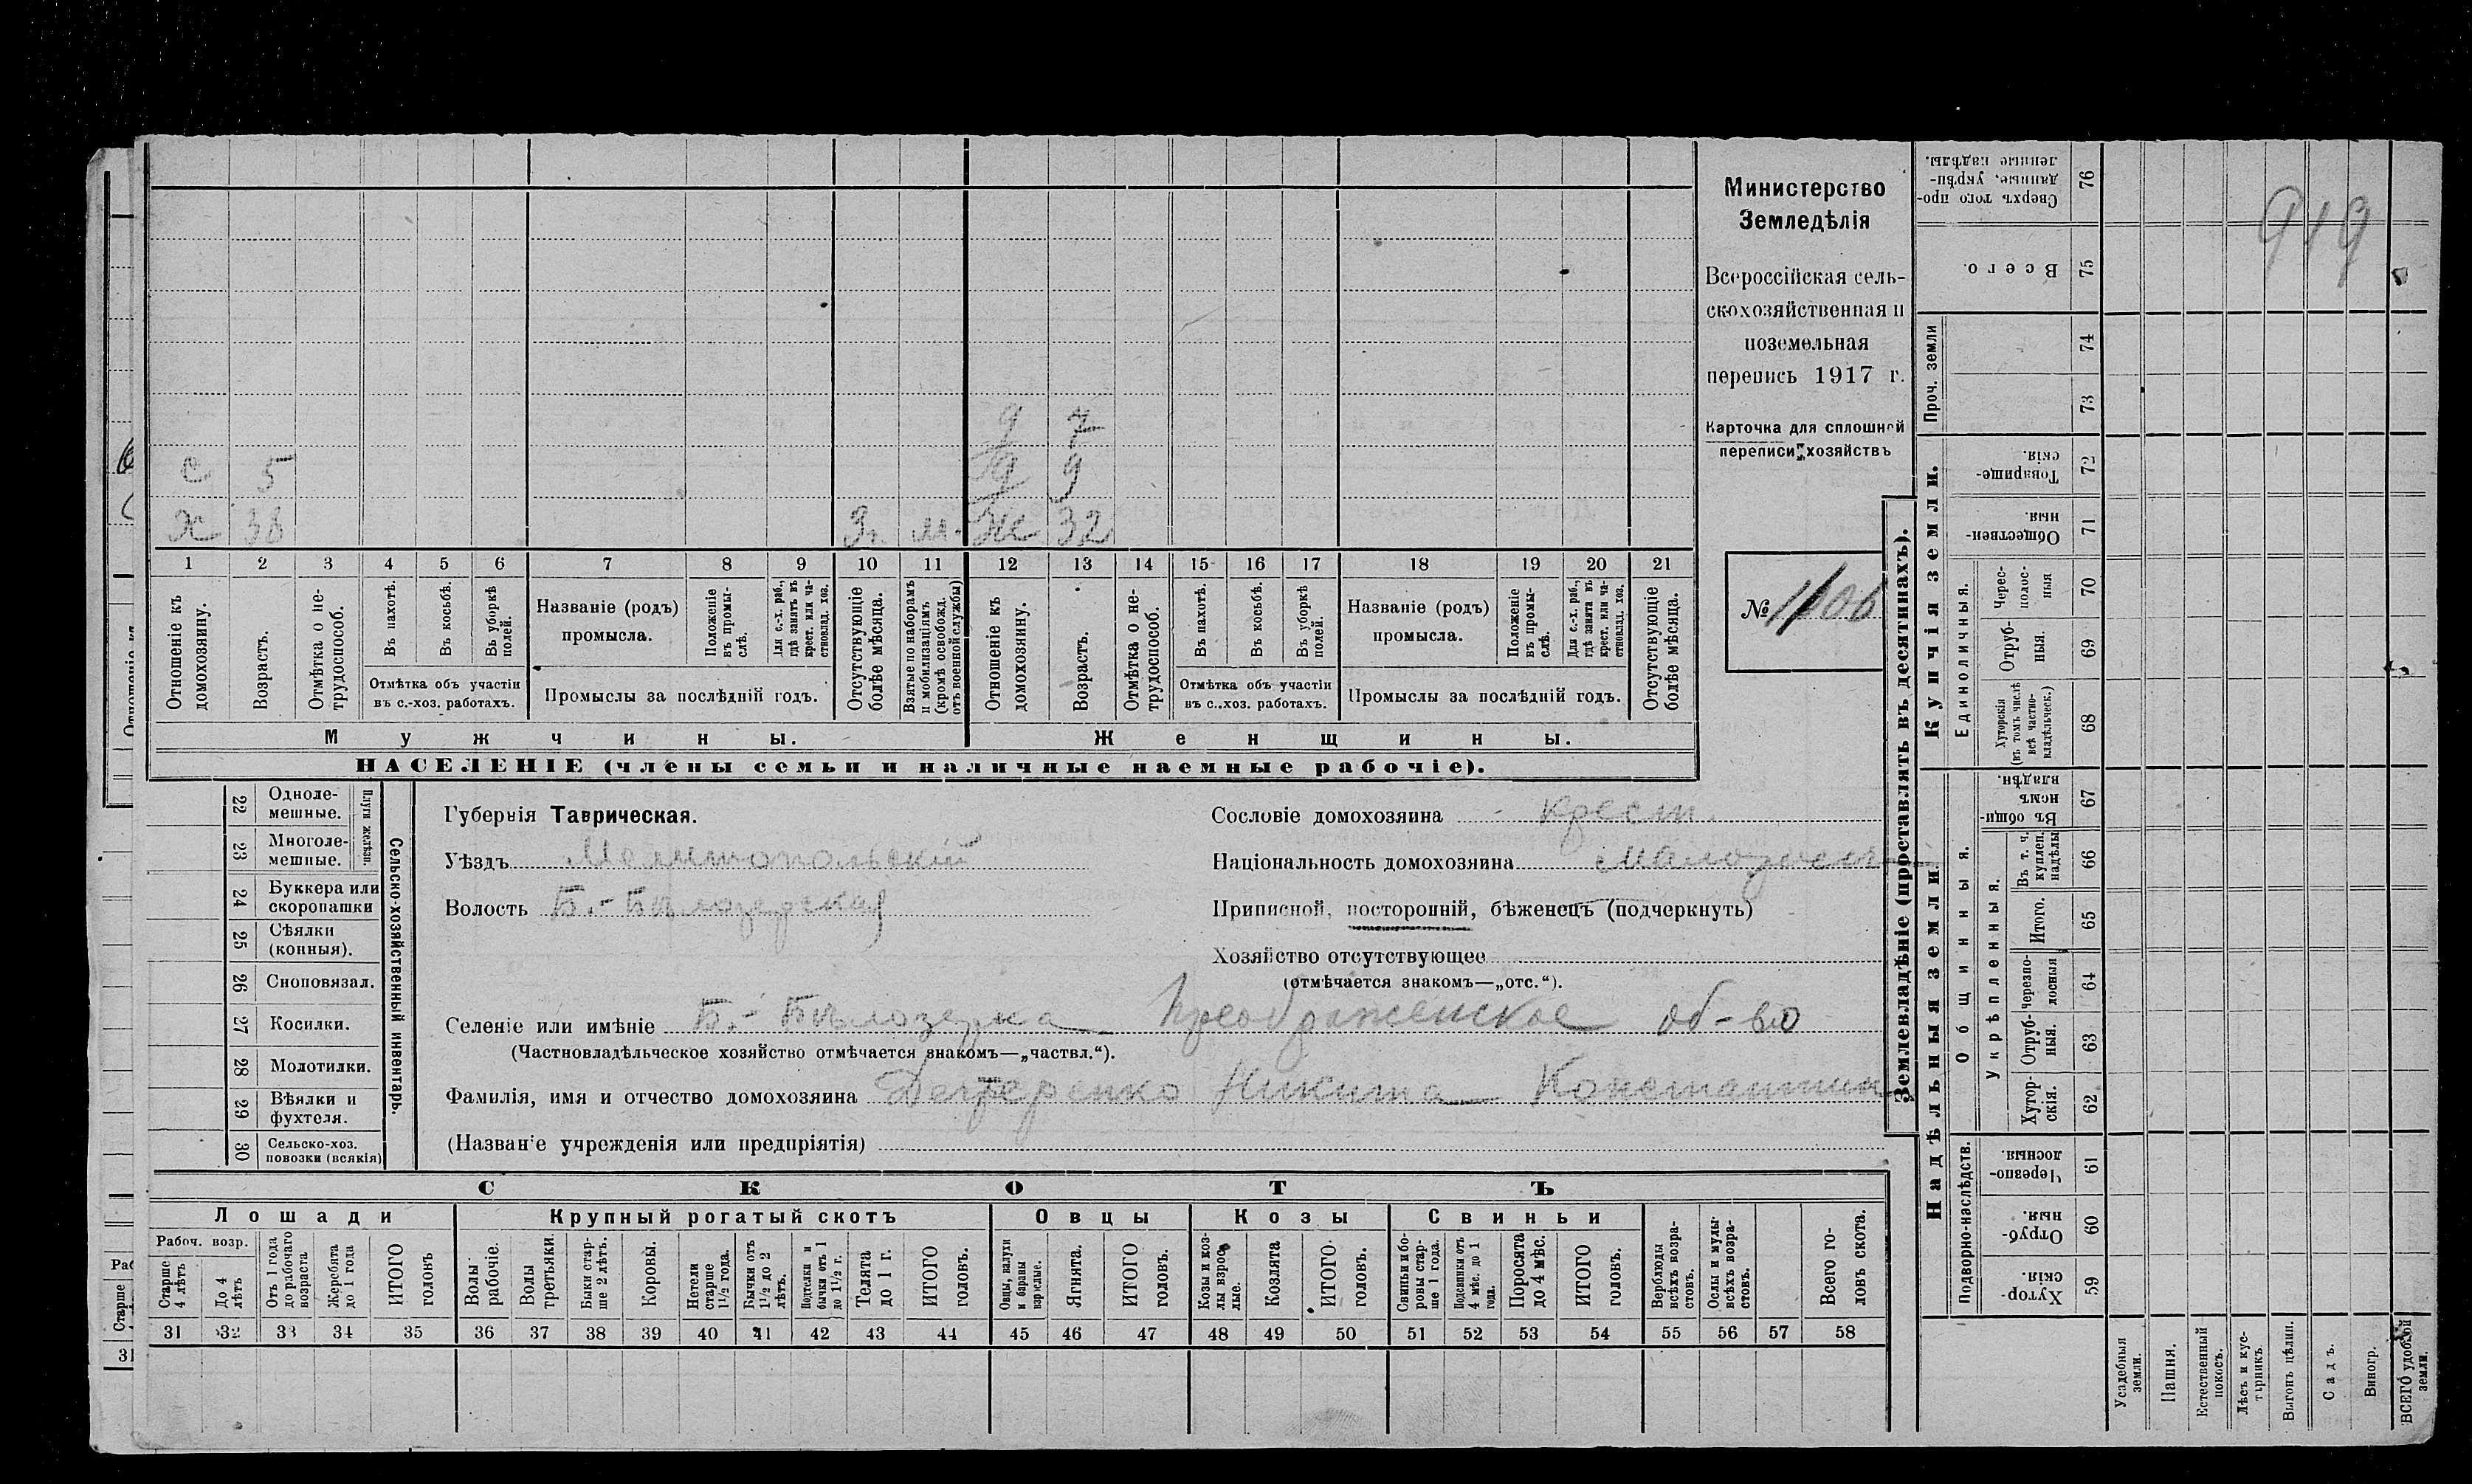 Министерство
Земледѣлія
Всероссійская сель-
скохозяйственная и
поземельная
перепись 1917 г.
Карточка для сплошной
переписи хозяйствъ
№ 1106
949
д 7
с 5 д 9
х 38 З. м. ж 32
1 2 3 4 5 6 7 8 9 10 11 12 13 14 15 16 17 18 19 20 21
Отношеніе къ домохозяину.
Возрастъ.
Отмѣтка о не-трудоспособ.
Въ пахотѣ.
Въ косьбѣ.
Въ уборкѣ полей.
Отмѣтка объ участіи
въ с.-хоз. работахъ.
Названіе (родъ)
промысла.
Положеніе въ промы-слѣ.
Для с.-х. раб., гдѣ занятъ въ крест. или ча-стновлад. хоз.
Промыслы за послѣдній годъ.
Отсутствующіе болѣе мѣсяца.
Взятые по наборамъ и мобилизаціямъ (кромѣ освобожд. отъ военной службы)
Отношеніе къ домохозяину.
Возрастъ.
Отмѣтка о не-трудоспособ.
Въ пахотѣ.
Въ косьбѣ.
Въ уборкѣ полей.
Отмѣтка объ участіи
въ с.-хоз. работахъ.
Названіе (родъ)
промысла.
Положеніе въ промы-слѣ.
Для с.-х. раб., гдѣ занята въ крест. или ча-стновлад. хоз.
Промыслы за послѣдній годъ.
Отсутствующіе болѣе мѣсяца.
Мужчины. Женщины.
НАСЕЛЕНІЕ (члены семьи и наличные наемные рабочіе).
Сельско-хозяйственный инвентарь.
Плуги желѣзн.
22 Одноле-мешные.
23 Многоле-мешные.
24 Буккера или скоропашки
25 Сѣялки (конныя).
26 Сноповязал.
27 Косилки.
28 Молотилки.
29 Вѣялки и фухтеля.
30 Сельско-хоз. повозки (всякія)
Губернія Таврическая.
Уѣздъ Мелитопольскій
Волость Б.-Бѣлозерская
Сословіе домохозяина крест.
Національность домохозяина малоросъ
Приписной, посторонній, бѣженецъ (подчеркнуть)
Хозяйство отсутствующее
(отмѣчается знакомъ—„отс.“).
Селеніе или имѣніе Б.-Бѣлозерка Преображенское об-во
(Частновладѣльческое хозяйство отмѣчается знакомъ—„частвл.“).
Фамилія, имя и отчество домохозяина Дегтеренко Никита Константин
(Названіе учрежденія или предпріятія)
СКОТЪ
Лошади Крупный рогатый скотъ Овцы Козы Свиньи
Рабоч. возр.
Старше 4 лѣтъ
До 4 лѣтъ
Отъ 1 года до рабочаго возраста
Жеребята до 1 года
ИТОГО головъ
Волы рабочіе.
Волы третьяки.
Быки стар-ше 2 лѣтъ.
Коровы.
Нетели старше 1½ года.
Бычки отъ 1½ до 2 лѣтъ.
Подтелки и бычки отъ 1 до 1½ г.
Телята до 1 г.
ИТОГО головъ.
Овцы, валухи и бараны взрослые.
Ягнята.
ИТОГО головъ.
Козы и коз-лы взрос-лые.
Козлята
ИТОГО головъ.
Свиньи и бо-ровы стар-ше 1 года.
Подсвинки отъ 4 мѣс. до 1 года.
Поросята до 4 мѣс.
ИТОГО головъ.
Верблюды всѣхъ возра-стовъ.
Ослы и мулы всѣхъ возра-стовъ.
Всего го-ловъ скота.
31 32 33 34 35 36 37 38 39 40 41 42 43 44 45 46 47 48 49 50 51 52 53 54 55 56 57 58
Землевладѣніе (проставлять въ десятинахъ).
Надѣльныя земли.
Купчія земли.
Проч. земли
Подворно-наслѣдств.
Общинныя.
Укрѣпленныя.
Единоличныя.
Хутор-скія. 59
Отруб-ныя. 60
Черезпо-лосныя 61
Хутор-скія. 62
Отруб-ныя. 63
Черезпо-лосныя 64
Итого. 65
Въ т. ч. куплен. надѣлы 66
Въ общи-номъ владѣн. 67
Хуторскія (въ томъ числѣ всѣ частно-владѣльческ.) 68
Отруб-ныя. 69
Черес-полос-ныя 70
Обществен-ныя. 71
Товарище-скія. 72
73
74
Всего. 75
Сверхъ того про-данные, укрѣп-ленные надѣлы. 76
Усадебныя земли.
Пашня.
Естественный покосъ.
Лѣсъ и кус-тарникъ.
Выгонъ цѣлин.
Садъ.
Виногр.
ВСЕГО удобной земли.
Старше
31